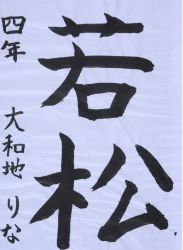 若松
四年
大和地りな